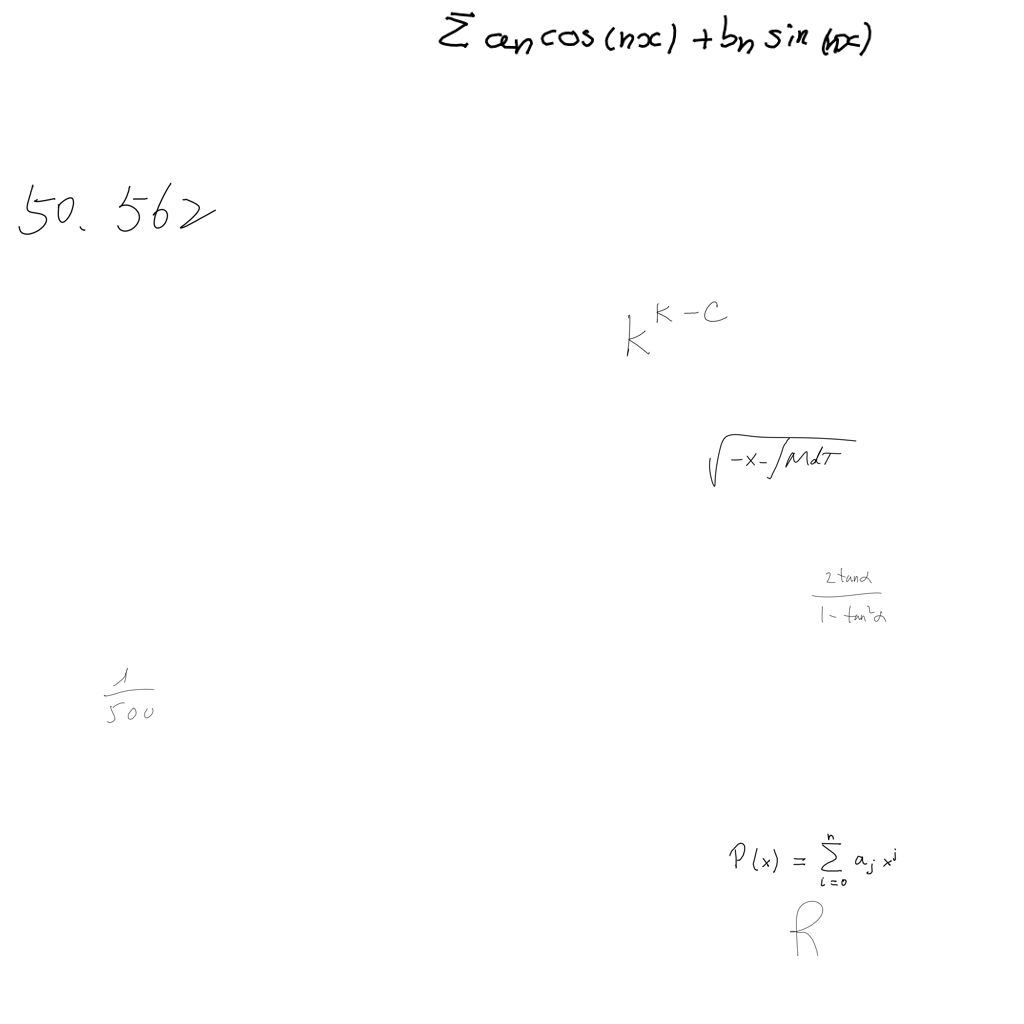 \sum a_n \cos(nx) + b_n \sin(nx)
50.562
k^{k-c}
\sqrt{-x-\int M d\tau}
\frac{2\tan\alpha}{1-\tan^2\alpha}
\frac{1}{500}
P(x) = \sum_{i=0}^{n} a_j x^j
R